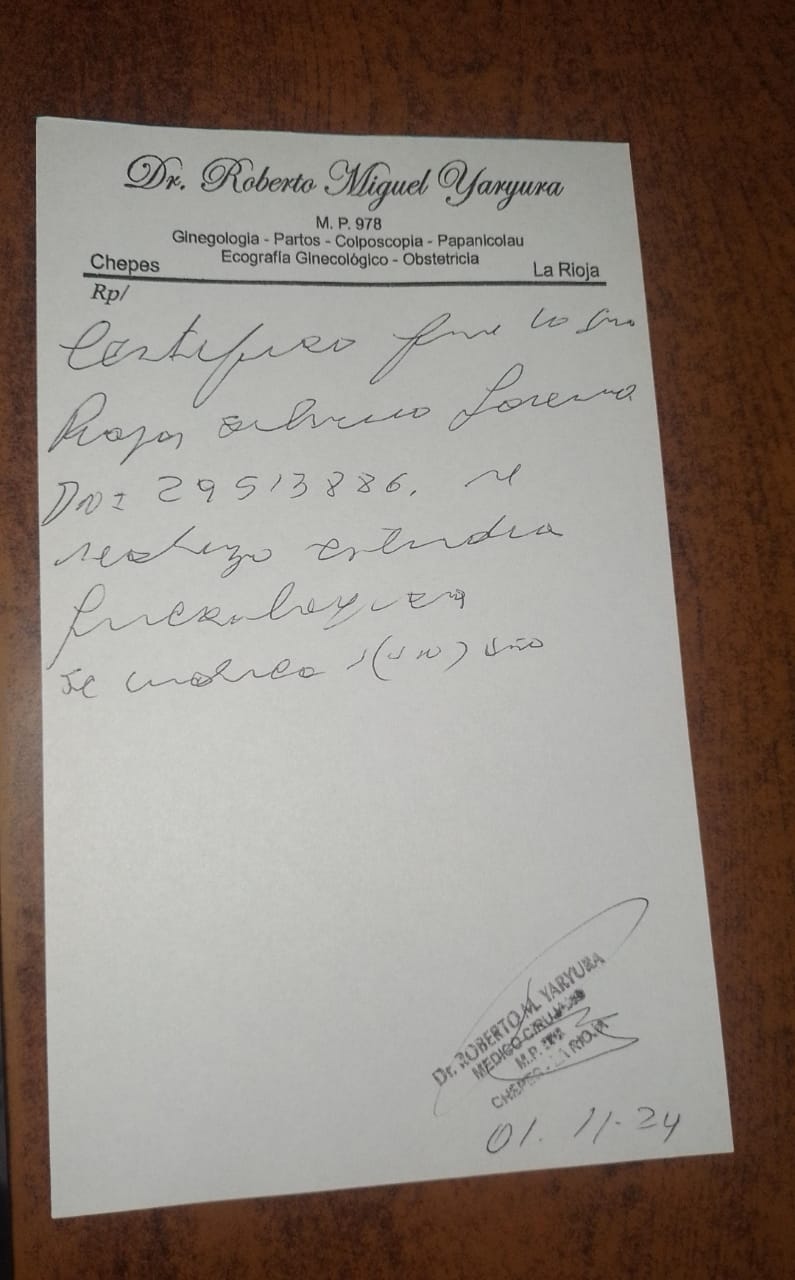 Dr. Roberto Miguel Yaryura
M. P. 978
Ginegologia - Partos - Colposcopia - Papanicolau
Ecografía Ginecológico - Obstetricia
Chepes La Rioja
Rp/
Certifico que la Sra
Rojas Lorena
DNI 29513886. se
realizo estudio
se indica 1 (un) año
Dr. ROBERTO M. YARYURA
MEDICO CIRUJANO
M.P. 978
CHEPES - LA RIOJA
01. 11-24